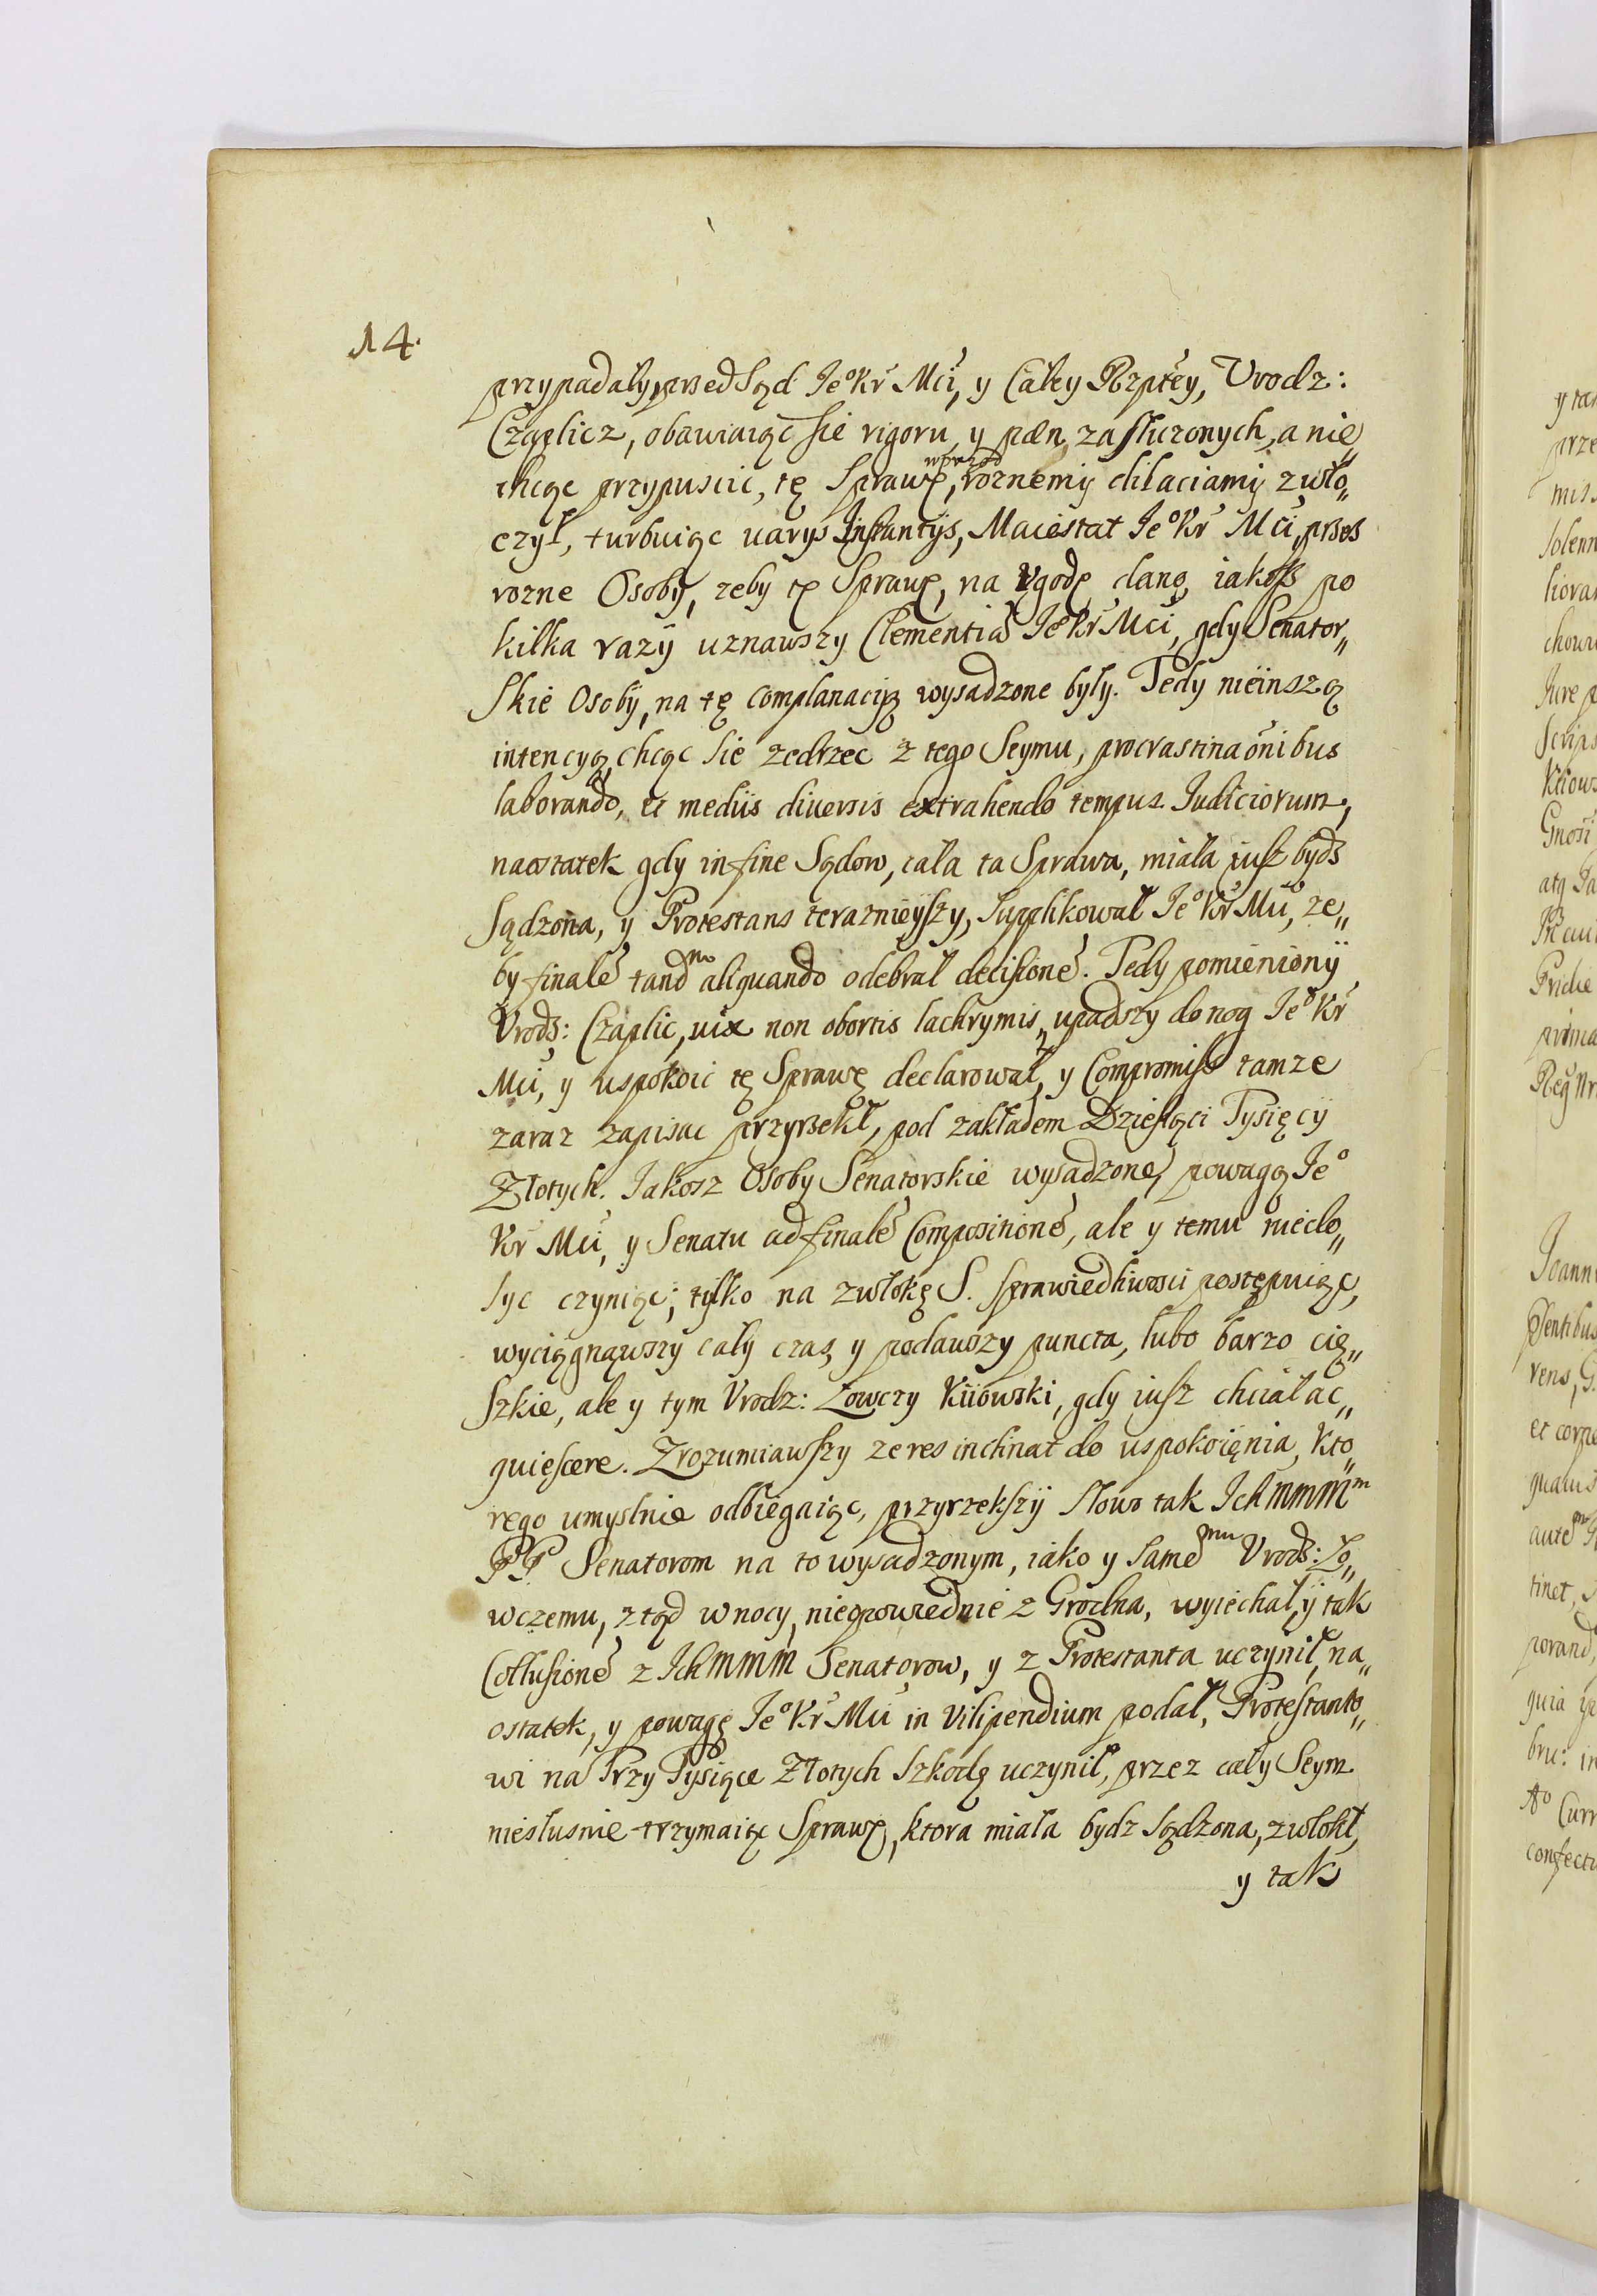 14.
przypadały, przed Sąd Ieº Kr Mci, y Całey Rzptey, Vrodz:
Czaplicz, obawiaiąc sie rigoru, y pæn, zasłuzonych, a nie„
chcąc przypuscic, tę Sprawę, wprzod roznemi dilaciami zwło„
czył, turbuiąc varys Instantijs, Maiestat Ieº Kr Mci, przez
rozne Osoby, zeby tę Sprawę, na Vgodę dano, iakosz po
kilka razy uznawszy Clementią Ieº Kr Mci, gdy Senator„
skie Osoby, na tę complanacyą wysadzone były. Tedy nieinszą
intencyą, chcąc sie zedrzec z tego Seymu, procrastinaonibus
laborando, et mediis diversis extrahendo tempus Iudiciorum,
naostatek gdy in fine Sądow, cała ta Sprawa, miała iusz bydz
Sądzona, y Protestans teraznieyszy, supplikował Ieº Kr Mci, ze„
by finalē tandmo aliquando odebrał decisionē. Tedy pomieniony
Vrodz: Czaplic, vix non obortis lachrymis, upadszy do nog Ieº Kr
Mci, y uspokoic tę Sprawę declarował, y Compromiss tamze
zaraz zapisac przyrzekł, pod zakładem Dziesiąci Tysięcy
Złotych. Iakosz Osoby Senatorskie wysadzone, powagą Ieº
Kr Mci, y Senatu ad finalē Compositionē, ale y temu niedo„
syc czyniąc, tylko na zwłokę S. sprawiedliwosci postępuiąc,
wyciągnąwszy cały czas, y podawszy puncta, lubo barzo cię„
szkie, ale y tym Vrodz: Łowczy Kiiowski, gdy iusz chciał ac„
quiescere. Zrozumiawszy ze res inclinat do uspokoięnia, kto„
rego umyslnie odbiegaiąc, przyrzekszy słowo tak Ich mmmm
PP Senatorom na to wysadzonym, iako y samemu Vrodz: Ło„
wczemu, ztąd w nocy, nieopowiednie z Grodna, wyiechał, y tak
Collusionē z Ich mmm Senatorow, y z Protestanta uczynił, na„
ostatek, y powagę Ieº Kr Mci in vilipendium podał, Protestanto„
wi na Trzy Tysiące Złotych szkodę uczynił, przez cały Seym
niesłusnie trzymaiąc Sprawę, ktora miała bydz sądzona, zwłokł,
y tak